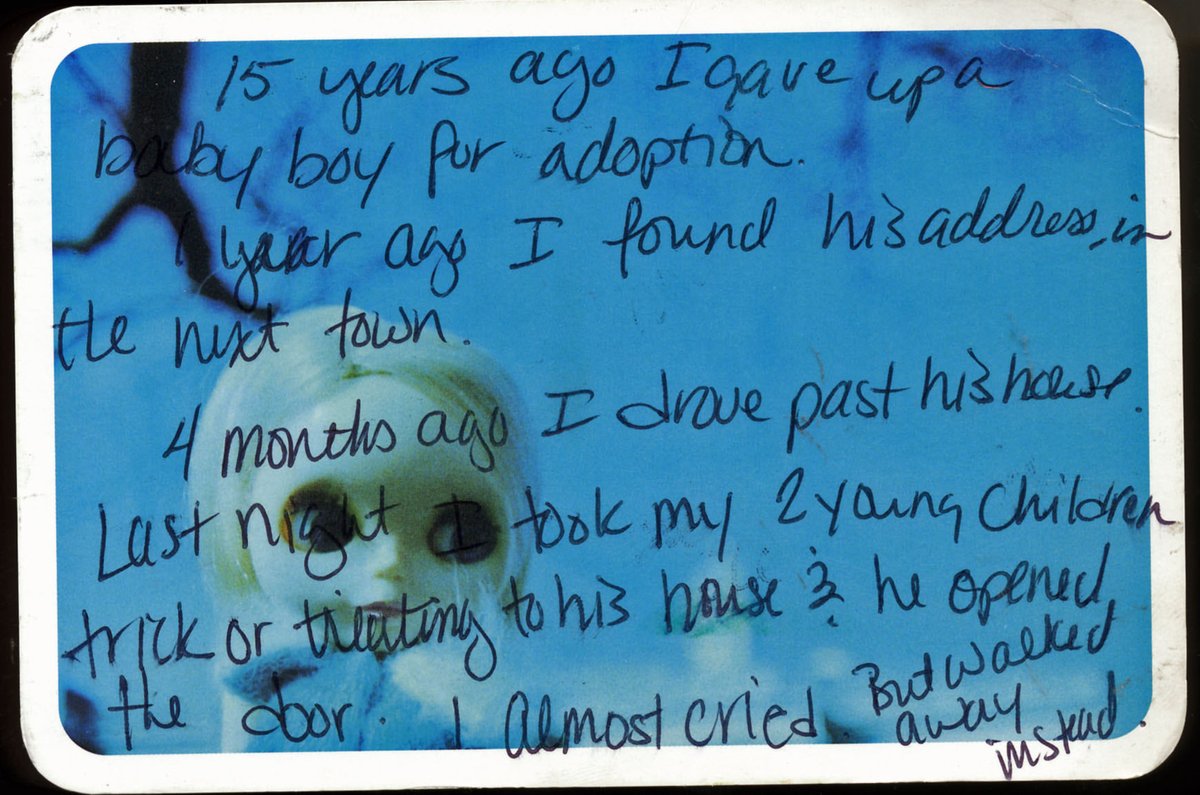 15 years ago I gave up a
baby boy for adoption.
1 year ago I found his address, in
the next town.
4 months ago I drove past his house.
Last night I took my 2 young children
trick or treating to his house & he opened
the door. I almost cried. But walked
away
instead.